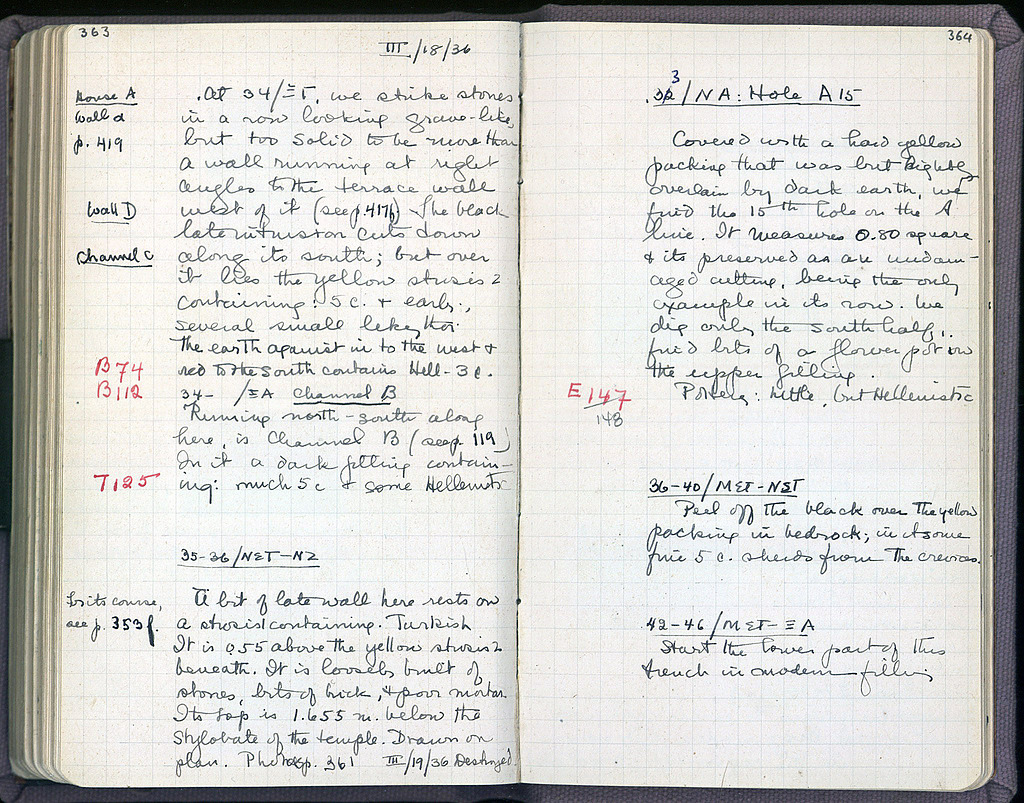 363
III/18/36
House A
wall a
p. 419
Wall D
Channel C
At 34/ΞΓ, we strike stones
in a row looking grave-like,
but too solid to be more than
a wall running at right
angles to the terrace wall
west of it (see p. 417f) The black
late intrusion cuts down
along its south; but over
it lies the yellow strosis 2
containing: 5 c. + early,
several small lekythoi.
The earth against in to the west +
red to the south contains Hell - 3 c.
B 74
B 112
34- /ΞA Channel B
Running north-south along
here, is Channel B (see p. 119)
In it a dark filling contain-
ing: much 5 c + some Hellenistic
T125
35-36/NΣT-NZ
For its course,
see p. 353 f.
A bit of late wall here rests on
a strosis containing. Turkish
It is 0.55 above the yellow strosis 2
beneath. It is loosely built of
stones, bits of brick, + poor mortar
Its top is 1.655 m. below the
Stylobate of the temple. Drawn on
plan. Photo p. 361 III/19/36 Destroyed.
364
3
32/NA: Hole A 15
Covered with a hard yellow
packing that was but slightly
overlain by dark earth, we
find the 15th hole on the A
line. It measures 0.80 square
& its preserved as an undam-
aged cutting, being the only
example in its row. We
dig only the south half,.
find bits of a flower pot in
the upper filling.
Pottery: little, but Hellenistic
E 147
148
36-40/MΣT-NΣT
Peel off the black over the yellow
packing in bedrock; in it some
fine 5 c. sherds from the crevices.
42-46/MΣT-ΞA
Start the lower part of this
trench in modern filling